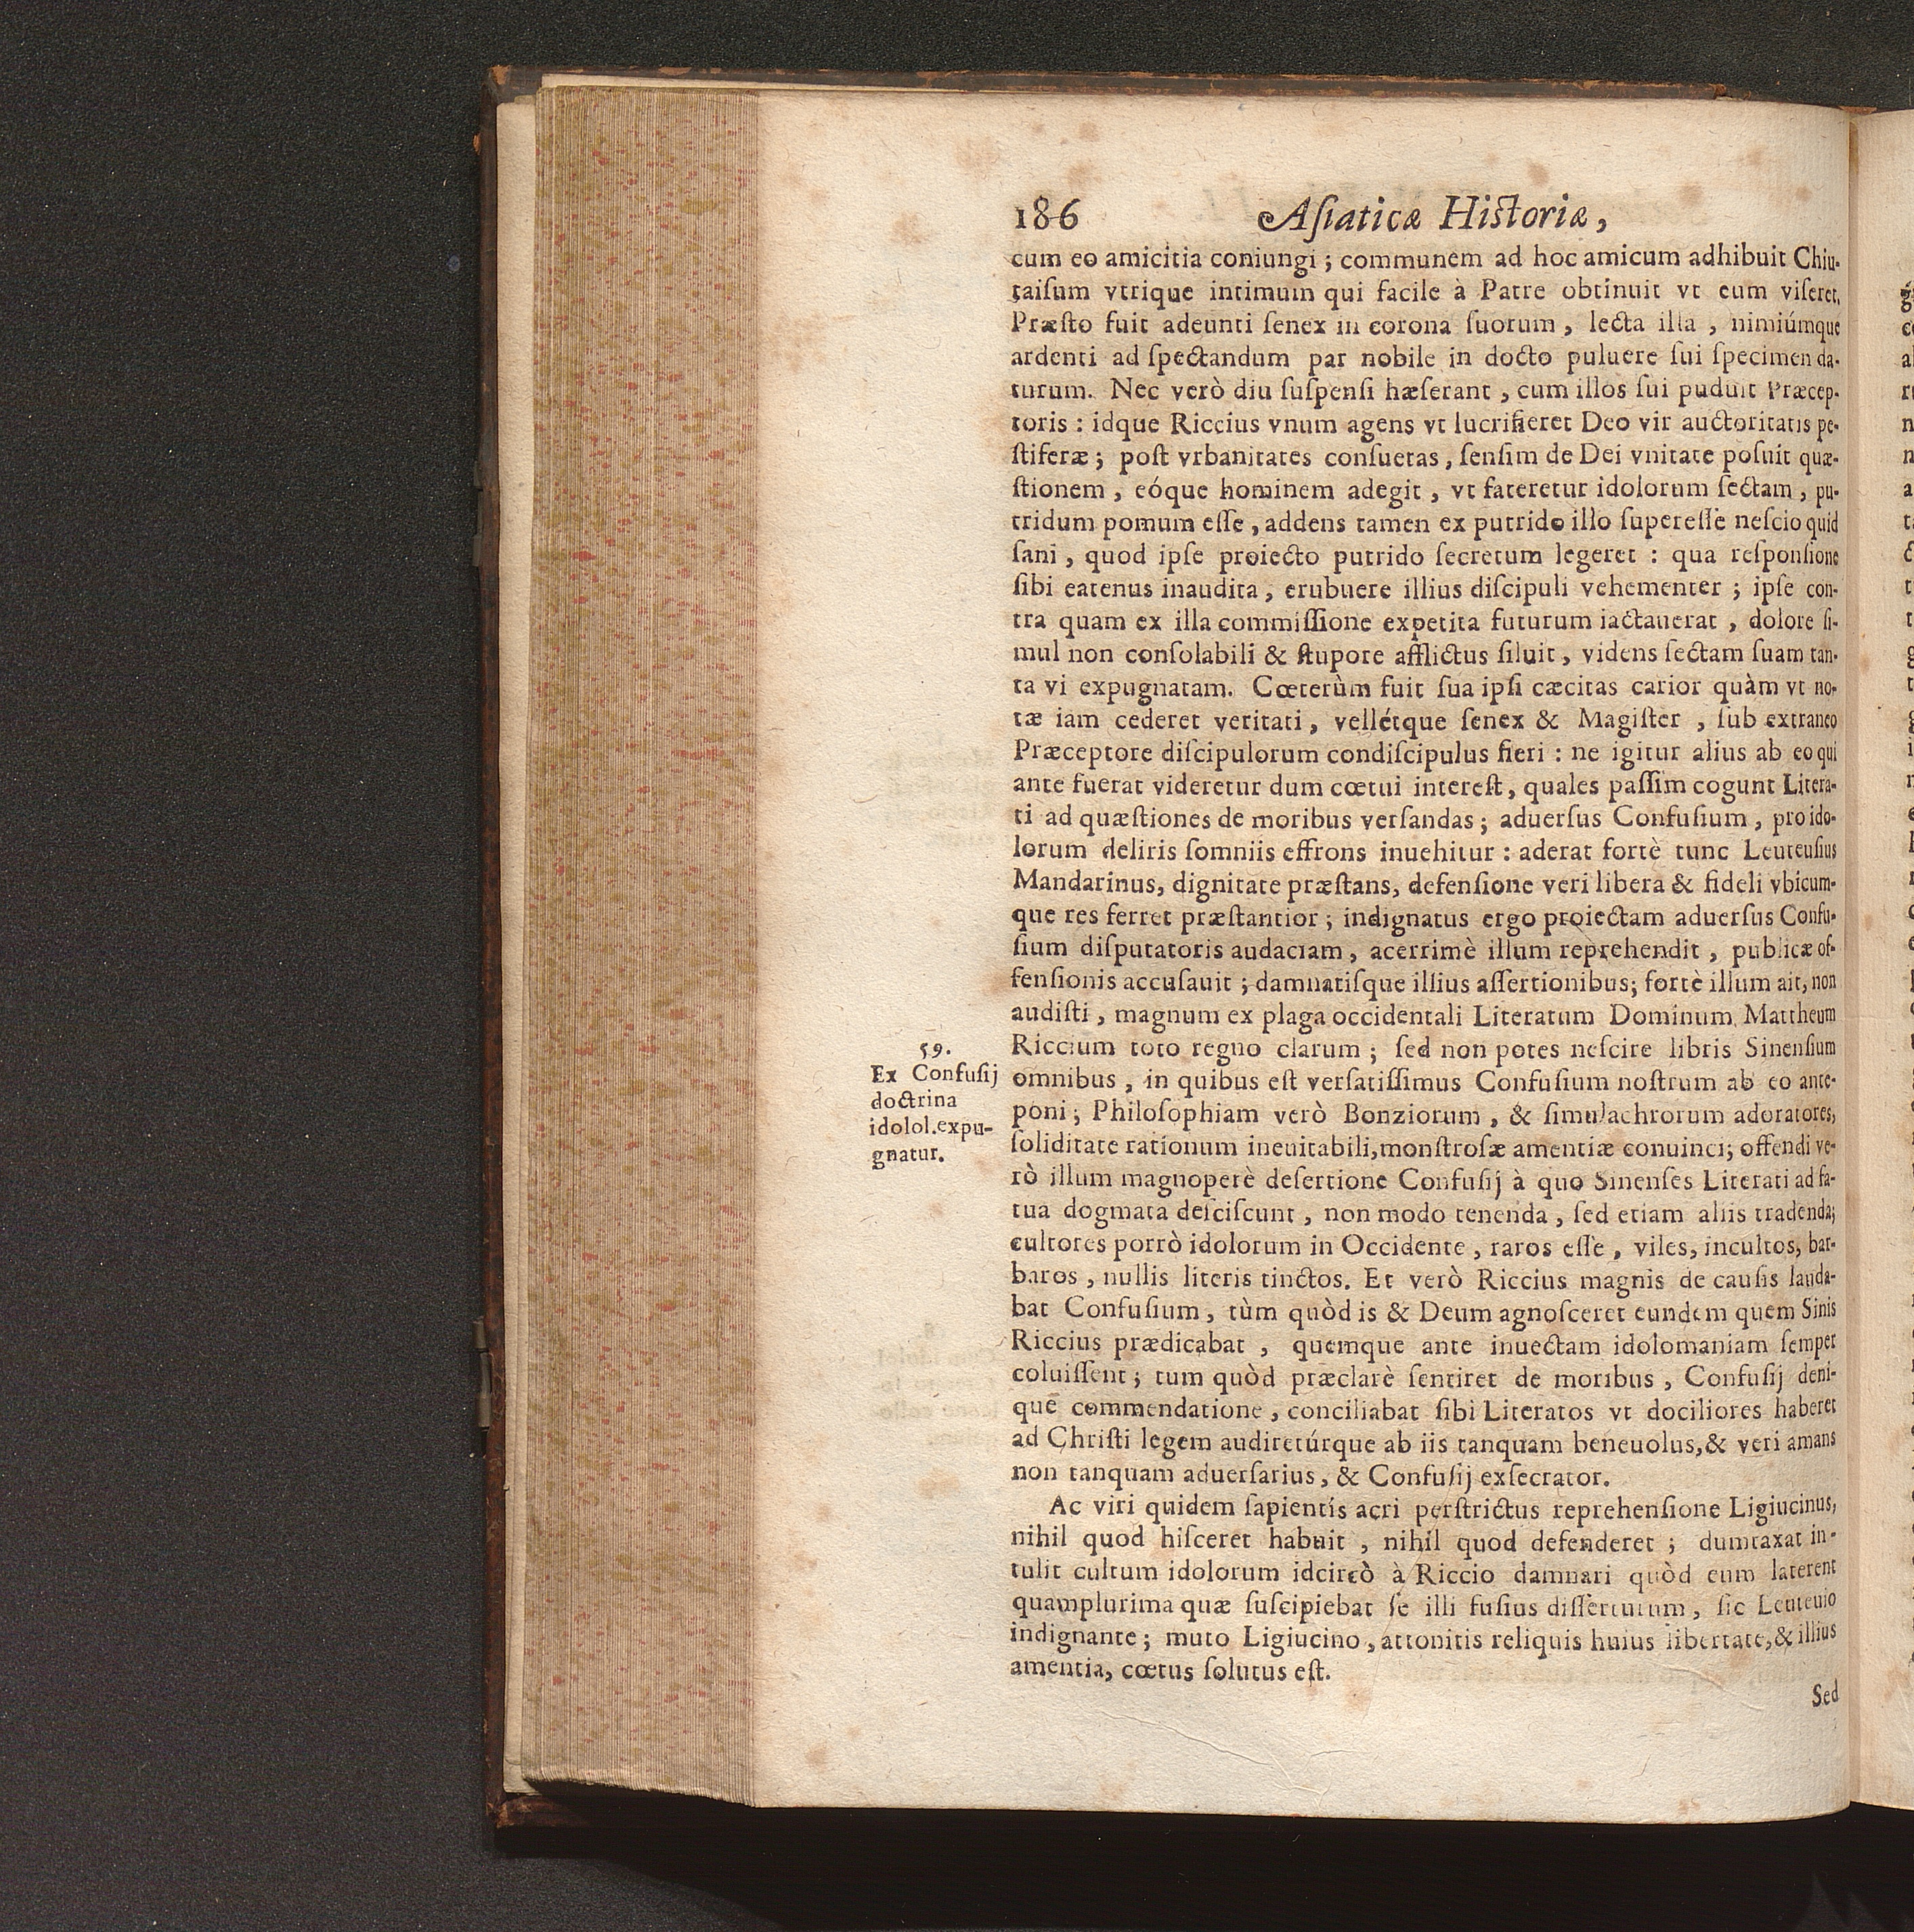 186 Aſiaticæ Hiſtoriæ,
cum eo amicitia coniungi ; communem ad hoc amicum adhibuit Chiu-
taiſum vtrique intimum qui facile à Patre obtinuit vt eum viſeret,
Præſto fuit adeunti ſenex in corona ſuorum , lecta illa , nimiúmque
ardenti ad ſpectandum par nobile in docto puluere ſui ſpecimen da-
turum. Nec verò diu ſuſpenſi hæſerant , cum illos ſui puduit Præcep-
toris : idque Riccius vnum agens vt lucrifieret Deo vir auctoritatis pe-
ſtiferæ ; poſt vrbanitates conſuetas , ſenſim de Dei vnitate poſuit quæ-
ſtionem , eóque hominem adegit , vt fateretur idolorum ſectam , pu-
tridum pomum eſſe , addens tamen ex putrido illo ſupereſſe neſcio quid
ſani , quod ipſe proiecto putrido ſecretum legeret : qua reſponſione
ſibi eatenus inaudita , erubuere illius diſcipuli vehementer ; ipſe con-
tra quam ex illa commiſſione expetita futurum iactauerat , dolore ſi-
mul non conſolabili & ſtupore afflictus ſiluit , videns ſectam ſuam tan-
ta vi expugnatam. Cœterùm fuit ſua ipſi cæcitas carior quàm vt no-
tæ iam cederet veritati , vellétque ſenex & Magiſter , ſub extraneo
Præceptore diſcipulorum condiſcipulus fieri : ne igitur alius ab eo qui
ante fuerat videretur dum cœtui intereſt, quales paſſim cogunt Litera-
ti ad quæſtiones de moribus verſandas ; aduerſus Confuſium , pro ido-
lorum deliris ſomniis effrons inuehitur : aderat fortè tunc Leuteuſius
Mandarinus, dignitate præſtans, defenſione veri libera & fideli vbicum-
que res ferret præſtantior ; indignatus ergo proiectam aduerſus Confu-
ſium diſputatoris audaciam , acerrimè illum reprehendit , publicæ of-
fenſionis accuſauit ; damnatiſque illius aſſertionibus; fortè illum ait, non
audiſti , magnum ex plaga occidentali Literatum Dominum Mattheum
Riccium toto regno clarum ; ſed non potes neſcire libris Sinenſium
omnibus , in quibus eſt verſatiſſimus Confuſium noſtrum ab eo ante-
poni ; Philoſophiam verò Bonziorum , & ſimulachrorum adoratores,
ſoliditate rationum ineuitabili, monſtroſæ amentiæ conuinci; offendi ve-
rò illum magnoperè deſertione Confuſij à quo Sinenſes Literati ad fa-
tua dogmata deſciſcunt , non modo tenenda , ſed etiam aliis tradenda;
cultores porrò idolorum in Occidente , raros eſſe , viles, incultos, bar-
baros , nullis literis tinctos. Et verò Riccius magnis de cauſis lauda-
bat Confuſium , tùm quòd is & Deum agnoſceret eundem quem Sinis
Riccius prædicabat , quemque ante inuectam idolomaniam ſemper
coluiſſent ; tum quòd præclarè ſentiret de moribus , Confuſij deni-
que commendatione , conciliabat ſibi Literatos vt dociliores haberet
ad Chriſti legem audiretúrque ab iis tanquam beneuolus, & veri amans
non tanquam aduerſarius, & Confuſij exſecrator.
59.
Ex Confuſij
doctrina
idolol. expu-
gnatur.
Ac viri quidem ſapientis acri perſtrictus reprehenſione Ligiucinus,
nihil quod hiſceret habuit , nihil quod defenderet ; dumtaxat in-
tulit cultum idolorum idcircò à Riccio damnari quòd eum laterent
quamplurima quæ ſuſcipiebat ſe illi fuſius diſſertutum , ſic Leuteuio
indignante ; muto Ligiucino , attonitis reliquis huius libertate, & illius
amentia, cœtus ſolutus eſt.
Sed